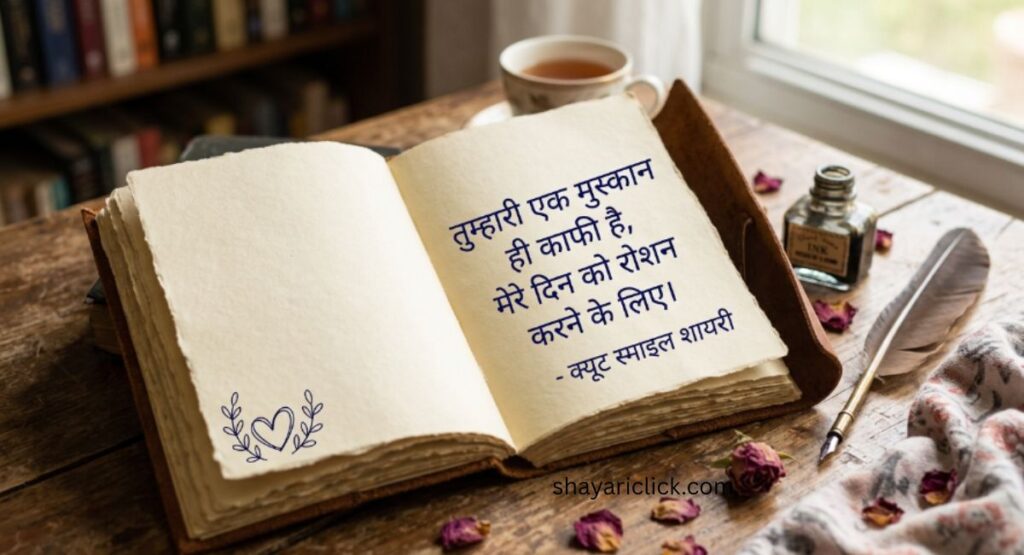 तुम्हारी एक मुस्कान
ही काफी है,
मेरे दिन को रोशन
करने के लिए।
- क्यूट स्माइल शायरी
INK
shayariclick.com